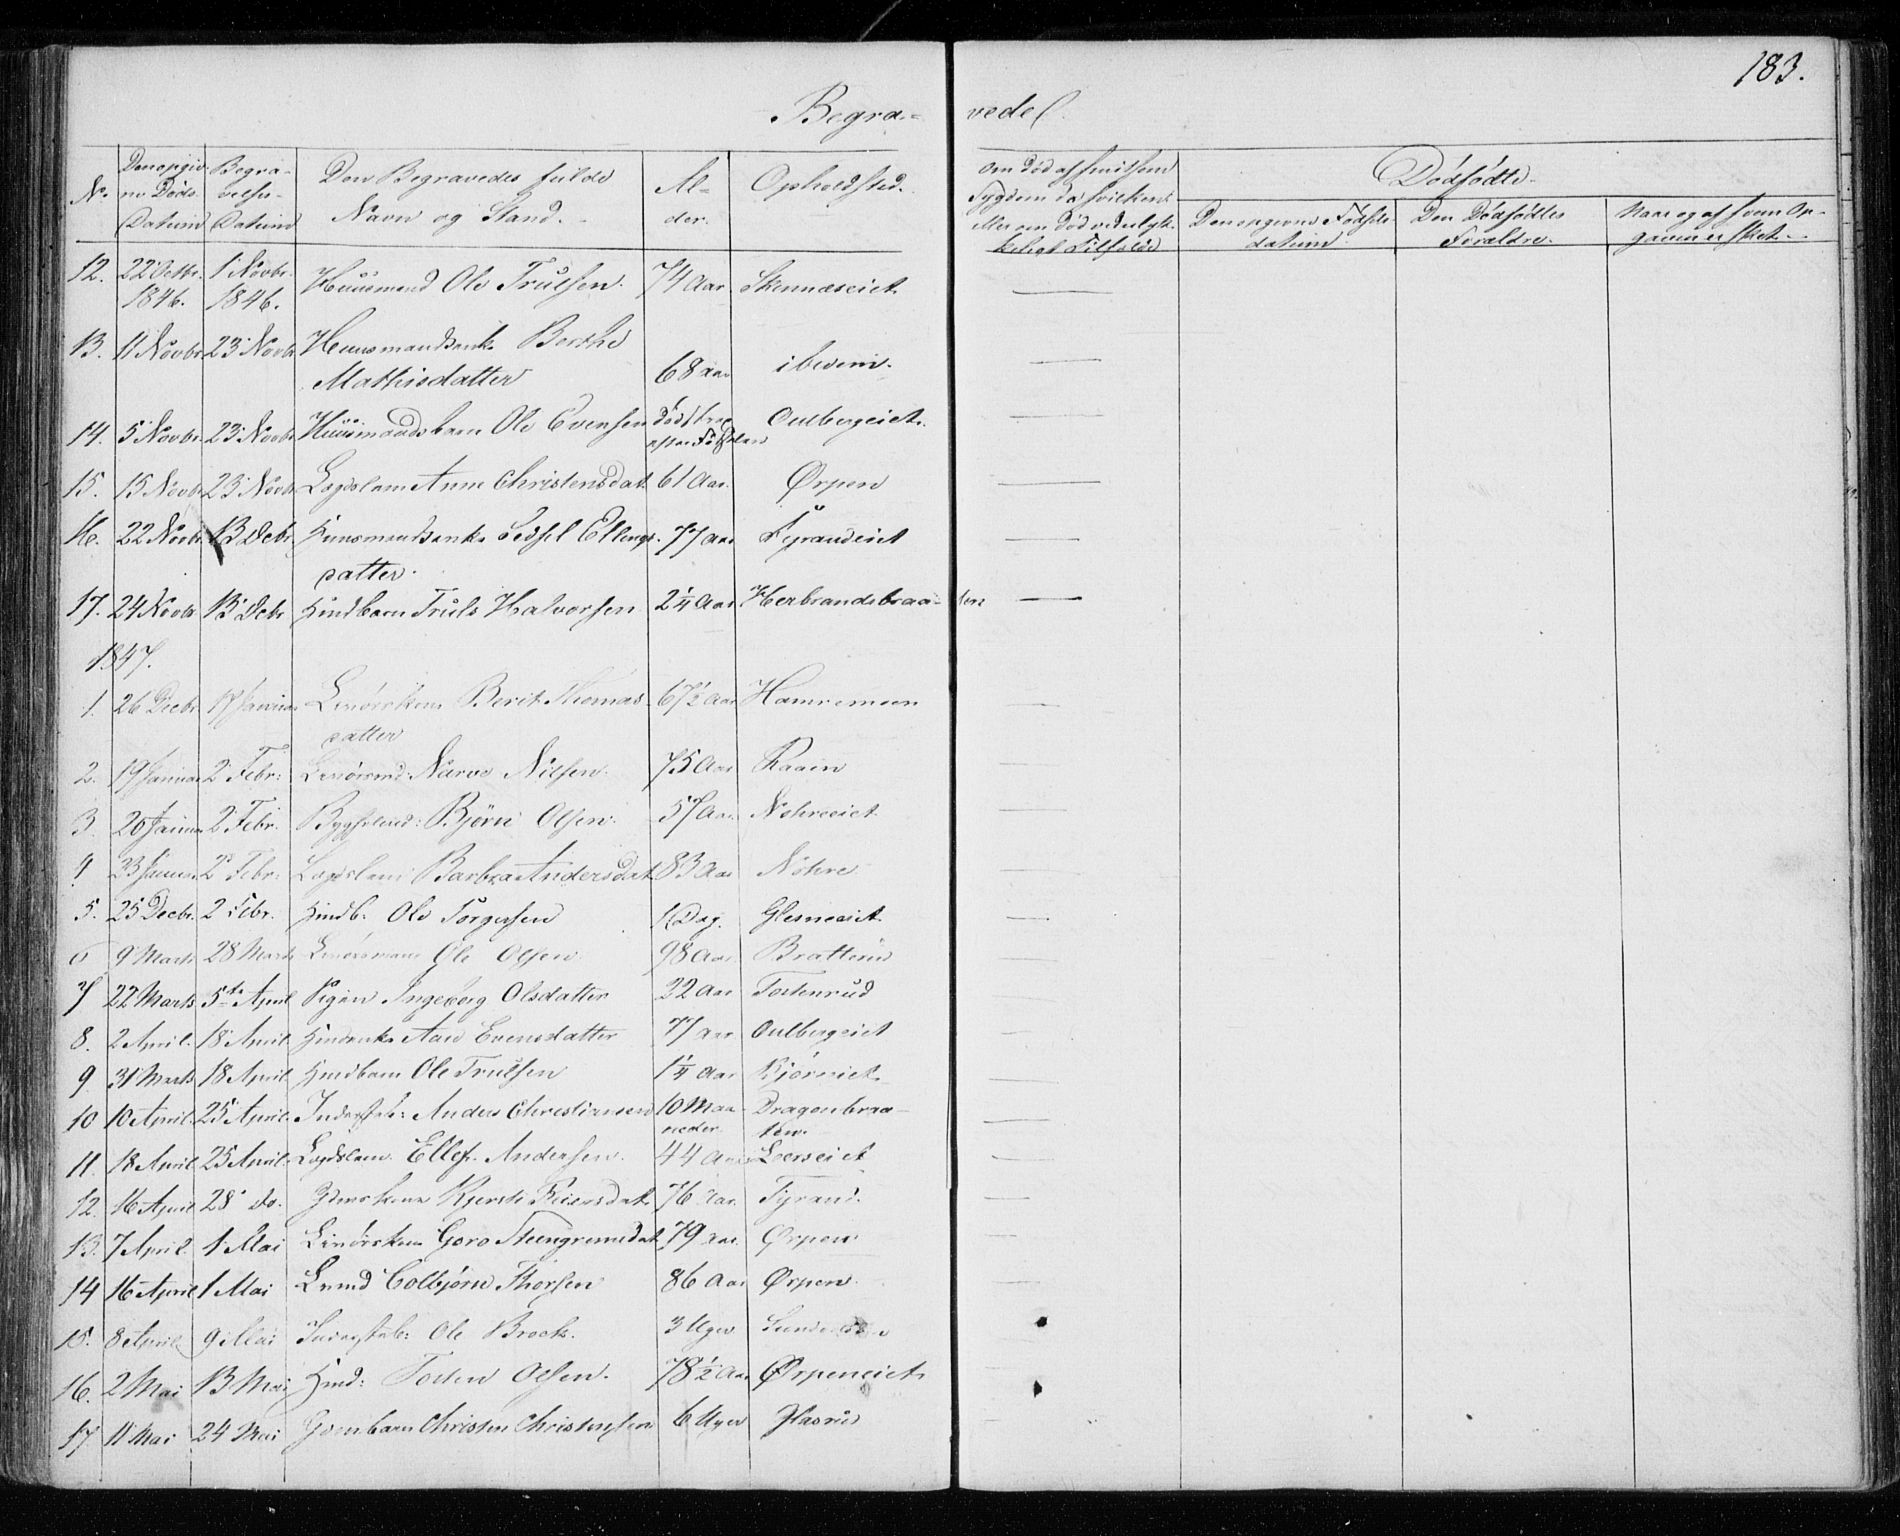 183.
Begra= vede
No. Den opgiv- ne Døds- Datum Begra- velses- Datum Den Begravedes fulde Navn og Stand. Al- der. Opholdsted. Om død af smitsom Sygdom da hvilken? eller om død ved ulyk- keligt Tilfælde Dødfødte.
Den opgivne Fødsels- datum Den Dødfødtes Forældre. Naar og af hvem Op- gaven er skeet.
12. 22 Octbr. 1846. 1 Novbr. 1846. Huusmand Ole Trulsen. 74 Aar. Skinnæseiet. —
13. 11 Novbr. 23 Novbr. Huusmandsenke Berthe Mathisdatter 68 aar ibidem. —
14. 5 Novbr. 23 Novbr. Huusmandsbarn Ole Evensen død strax efter Fødselen Oulbergeiet. —
15. 15 Novbr. 23 Novbr. Lægdslem Anne Christensdat. 61 Aar. Ørpen —
16. 22 Novbr. 13 Debr. Huusmandsenke Sidsel Ellings- datter. 77 Aar Tyrandeiet —
17. 24 Novbr 13 Debr Hmdbarn Truls Halvorsen 2¼ Aar Herbrandsbraa- ten —
1847.
1. 26 Decbr. 17 Januar Berit Thomas- datter 67½ Aar Hamremoen —
2. 19 Januar 2 Febr: Narve Nilsen. 75 Aar Raaen —
3. 20 Januar 2 Febr. Bygselmd: Bjørn Olsen. 57 Aar. Nøhreeiet —
4 23 Januar 2 Febr: Lægdslem Barbra Andersdat. 83 Aar Nøhre —
5. 25 Decbr. 2 Febr. Hmdb: Ole Torgersen 1 Dag. Glesneeiet —
6 9 Marts 28 Marts Ole Olsen 98 Aar Bratterud —
7 22 Marts 5te April Pigen Ingeborg Olsdatter 22 Aar Tostenrud —
8. 2 April. 18 April. Hmdenke Aase Evensdatter 77 aar Oulbergeiet —
9 31 Marts 18 April Hmdbarn Ole Trulsen 1¼ Aar Bjørneiet —
10 10 April. 25 April. Inderstsb: Anders Christiansen 10 Maa- neder Dragonbraa- ten. —
11. 18 April 25 April. Lægdslem Ellef Andersen. 44 Aar Leerseiet —
12. 16 April 28 do. Kjersti Reiersdat. 76 Aar. Tyrand. —
13. 7 April. 1 Mai Goro Steengrimsdat. 79 aar. Ørpen —
14 16 April 1 Mai Colbjørn Thorsen 86 Aar Ørpen.
15. 8 April 9 Mai Inderstsb: Ole Brock. 3 Uger
16. 2 Mai 13 Mai Hmd: Tosten Olsen. 78½ Aar Ørpeneiet —
17 11 Mai 24 Mai Christen Christensen 6 Uger Hasrud —